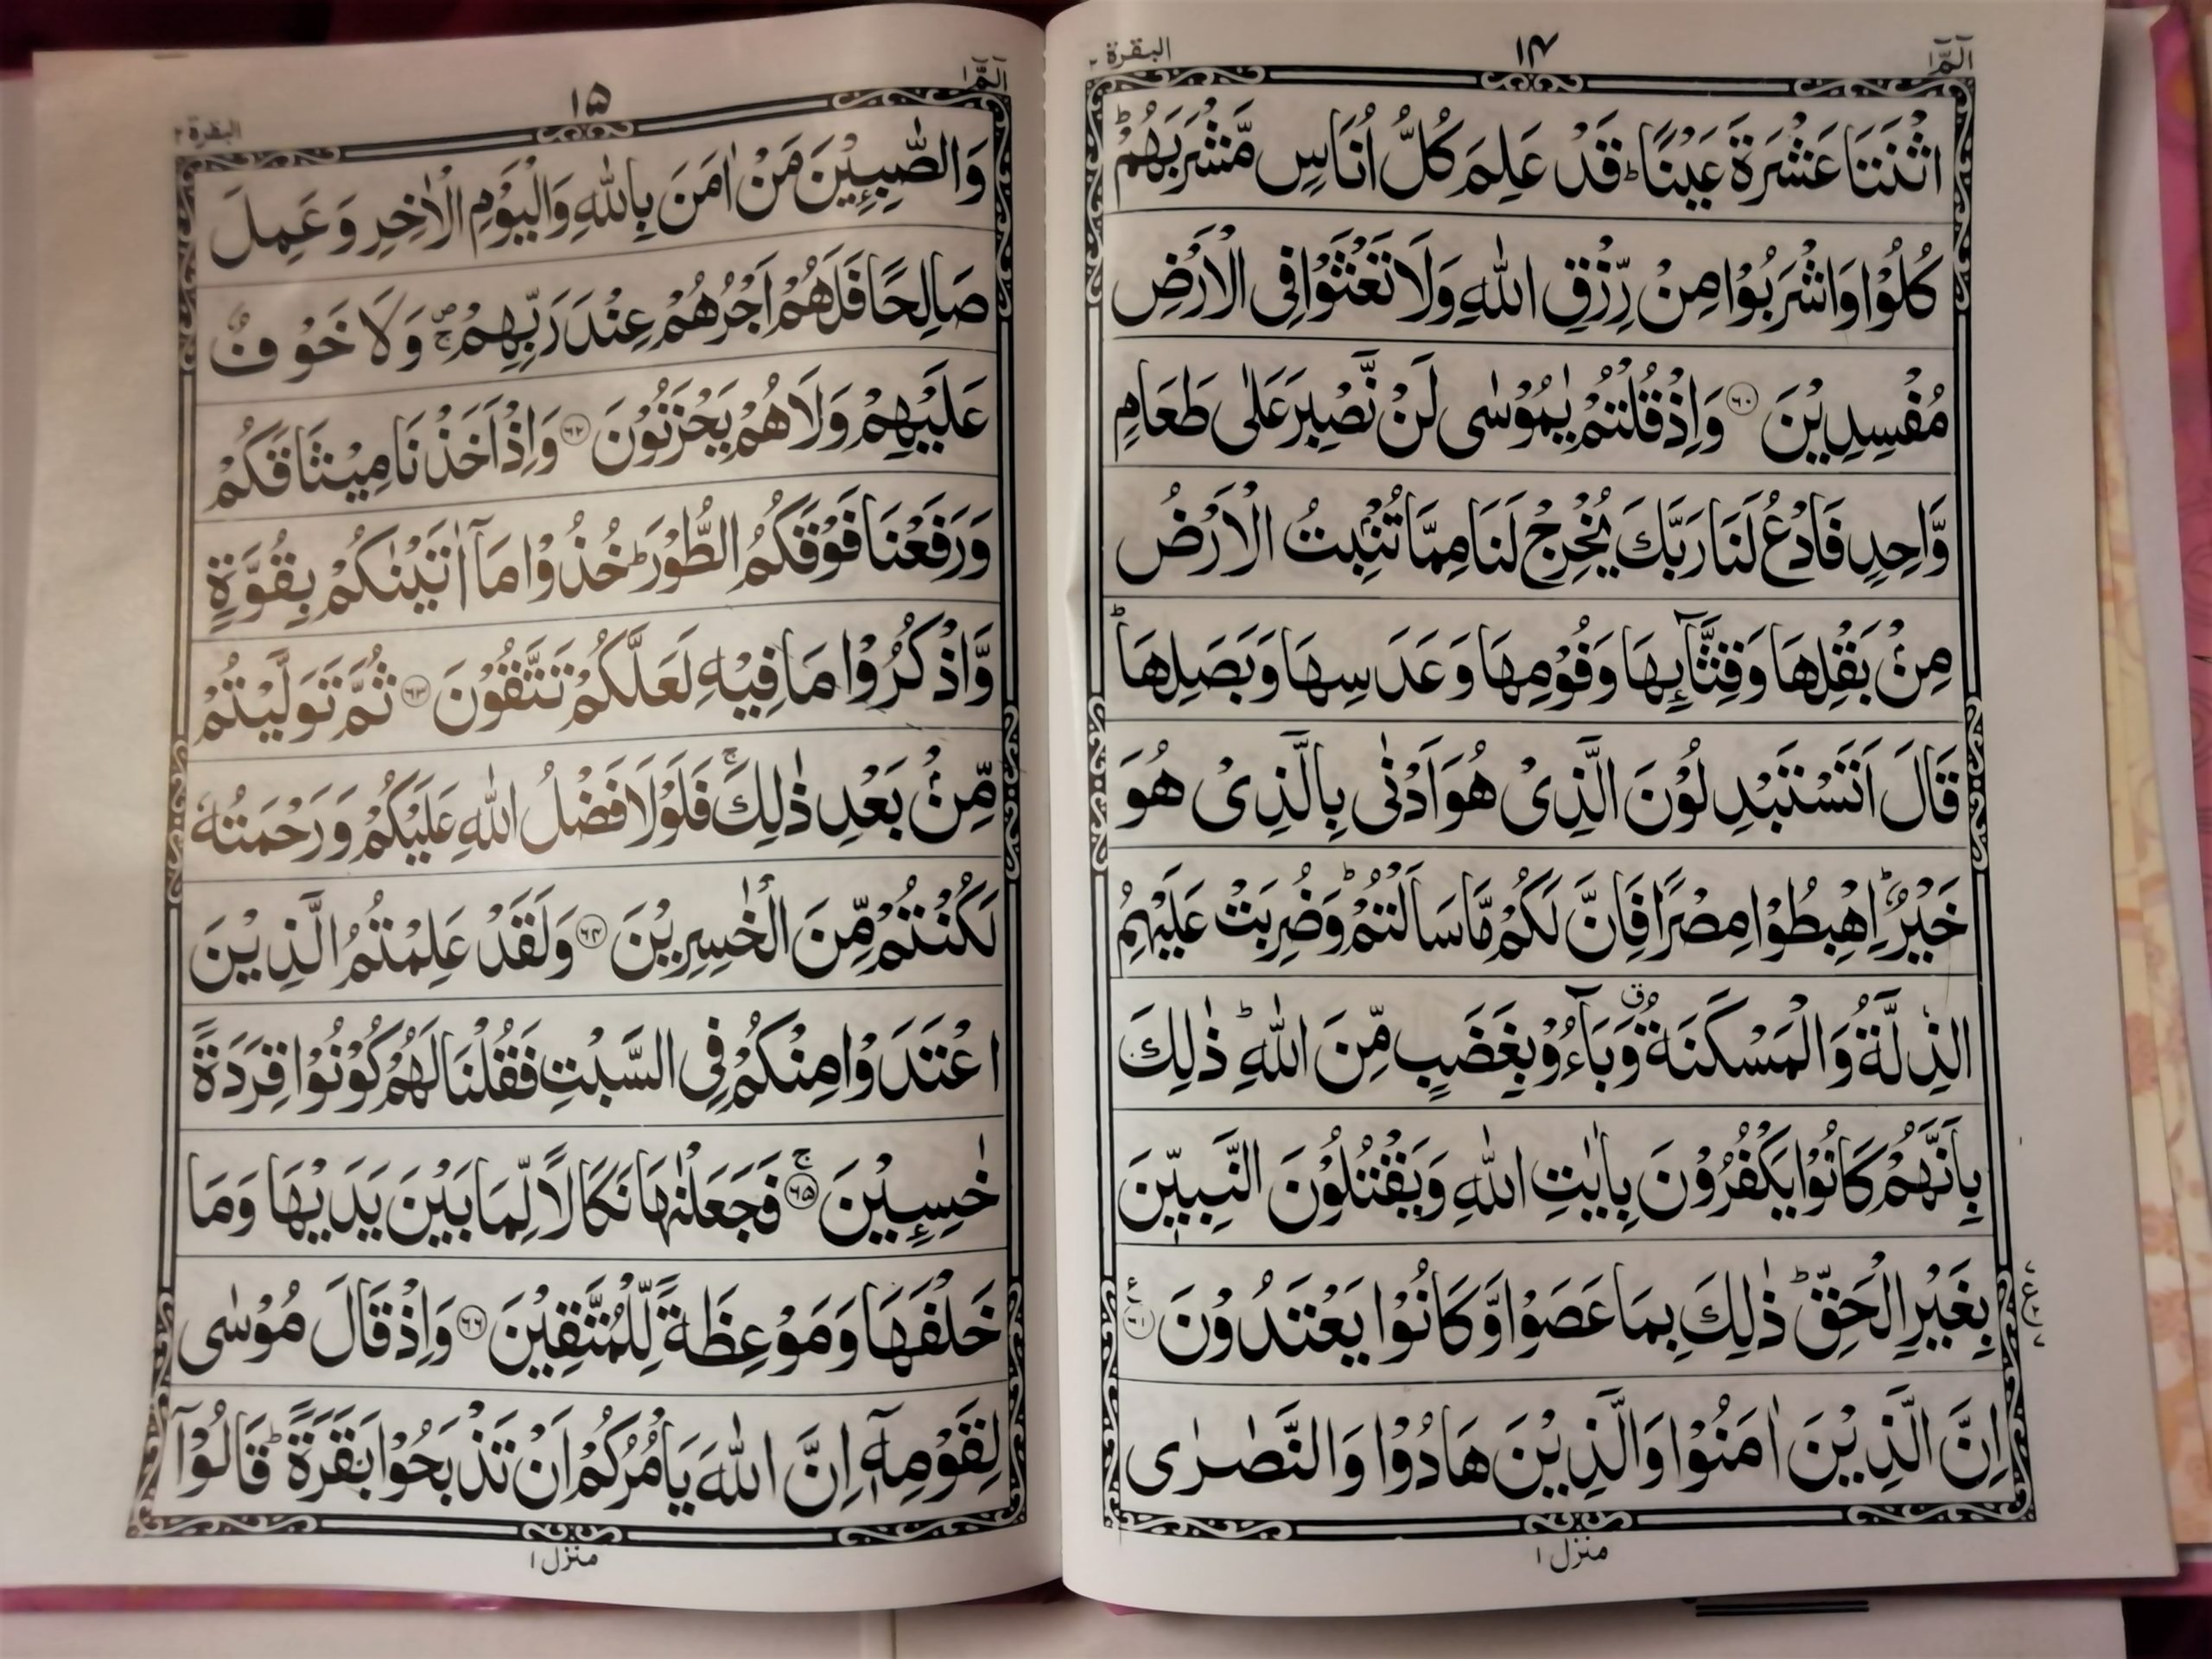 الٓمّٓ ١
١٤
البقرة ٢
اثْنَتَا عَشْرَةَ عَيْنًا ؕ قَدْ عَلِمَ كُلُّ اُنَاسٍ مَّشْرَبَهُمْ ؕ
كُلُوْا وَاشْرَبُوْا مِنْ رِّزْقِ اللّٰهِ وَلَا تَعْثَوْا فِی الْاَرْضِ
مُفْسِدِيْنَ ۝۶۰ وَاِذْ قُلْتُمْ يٰمُوْسٰی لَنْ نَّصْبِرَ عَلٰی طَعَامٍ
وَّاحِدٍ فَادْعُ لَنَا رَبَّكَ يُخْرِجْ لَنَا مِمَّا تُنْۢبِتُ الْاَرْضُ
مِنْۢ بَقْلِهَا وَقِثَّآئِهَا وَفُوْمِهَا وَعَدَسِهَا وَبَصَلِهَا ؕ
قَالَ اَتَسْتَبْدِلُوْنَ الَّذِیْ هُوَ اَدْنٰی بِالَّذِیْ هُوَ
خَيْرٌ ؕ اِهْبِطُوْا مِصْرًا فَاِنَّ لَكُمْ مَّا سَاَلْتُمْ ؕ وَضُرِبَتْ عَلَيْهِمُ
الذِّلَّةُ وَالْمَسْكَنَةُ ۗ وَبَآءُوْ بِغَضَبٍ مِّنَ اللّٰهِ ؕ ذٰلِكَ
بِاَنَّهُمْ كَانُوْا يَكْفُرُوْنَ بِاٰيٰتِ اللّٰهِ وَيَقْتُلُوْنَ النَّبِيّٖنَ
بِغَيْرِ الْحَقِّ ؕ ذٰلِكَ بِمَا عَصَوْا وَّكَانُوْا يَعْتَدُوْنَ ۝۶۱
اِنَّ الَّذِيْنَ اٰمَنُوْا وَالَّذِيْنَ هَادُوْا وَالنَّصٰرٰی
منزل ١
الٓمّٓ ١
١٥
البقرة ٢
وَالصّٰبِـِٕيْنَ مَنْ اٰمَنَ بِاللّٰهِ وَالْيَوْمِ الْاٰخِرِ وَعَمِلَ
صَالِحًا فَلَهُمْ اَجْرُهُمْ عِنْدَ رَبِّهِمْ ۪ۚ وَلَا خَوْفٌ
عَلَيْهِمْ وَلَا هُمْ يَحْزَنُوْنَ ۝۶۲ وَاِذْ اَخَذْنَا مِيْثَاقَكُمْ
وَرَفَعْنَا فَوْقَكُمُ الطُّوْرَ ؕ خُذُوْا مَآ اٰتَيْنٰكُمْ بِقُوَّةٍ
وَّاذْكُرُوْا مَا فِيْهِ لَعَلَّكُمْ تَتَّقُوْنَ ۝۶۳ ثُمَّ تَوَلَّيْتُمْ
مِّنْۢ بَعْدِ ذٰلِكَ ۚ فَلَوْلَا فَضْلُ اللّٰهِ عَلَيْكُمْ وَرَحْمَتُهٗ
لَكُنْتُمْ مِّنَ الْخٰسِرِيْنَ ۝۶۴ وَلَقَدْ عَلِمْتُمُ الَّذِيْنَ
اعْتَدَوْا مِنْكُمْ فِی السَّبْتِ فَقُلْنَا لَهُمْ كُوْنُوْا قِرَدَةً
خٰسِـِٕيْنَ ۝۶۵ ۚ فَجَعَلْنٰهَا نَكَالًا لِّمَا بَيْنَ يَدَيْهَا وَمَا
خَلْفَهَا وَمَوْعِظَةً لِّلْمُتَّقِيْنَ ۝۶۶ وَاِذْ قَالَ مُوْسٰی
لِقَوْمِهٖۤ اِنَّ اللّٰهَ يَاْمُرُكُمْ اَنْ تَذْبَحُوْا بَقَرَةً ؕ قَالُوْۤا
منزل ١